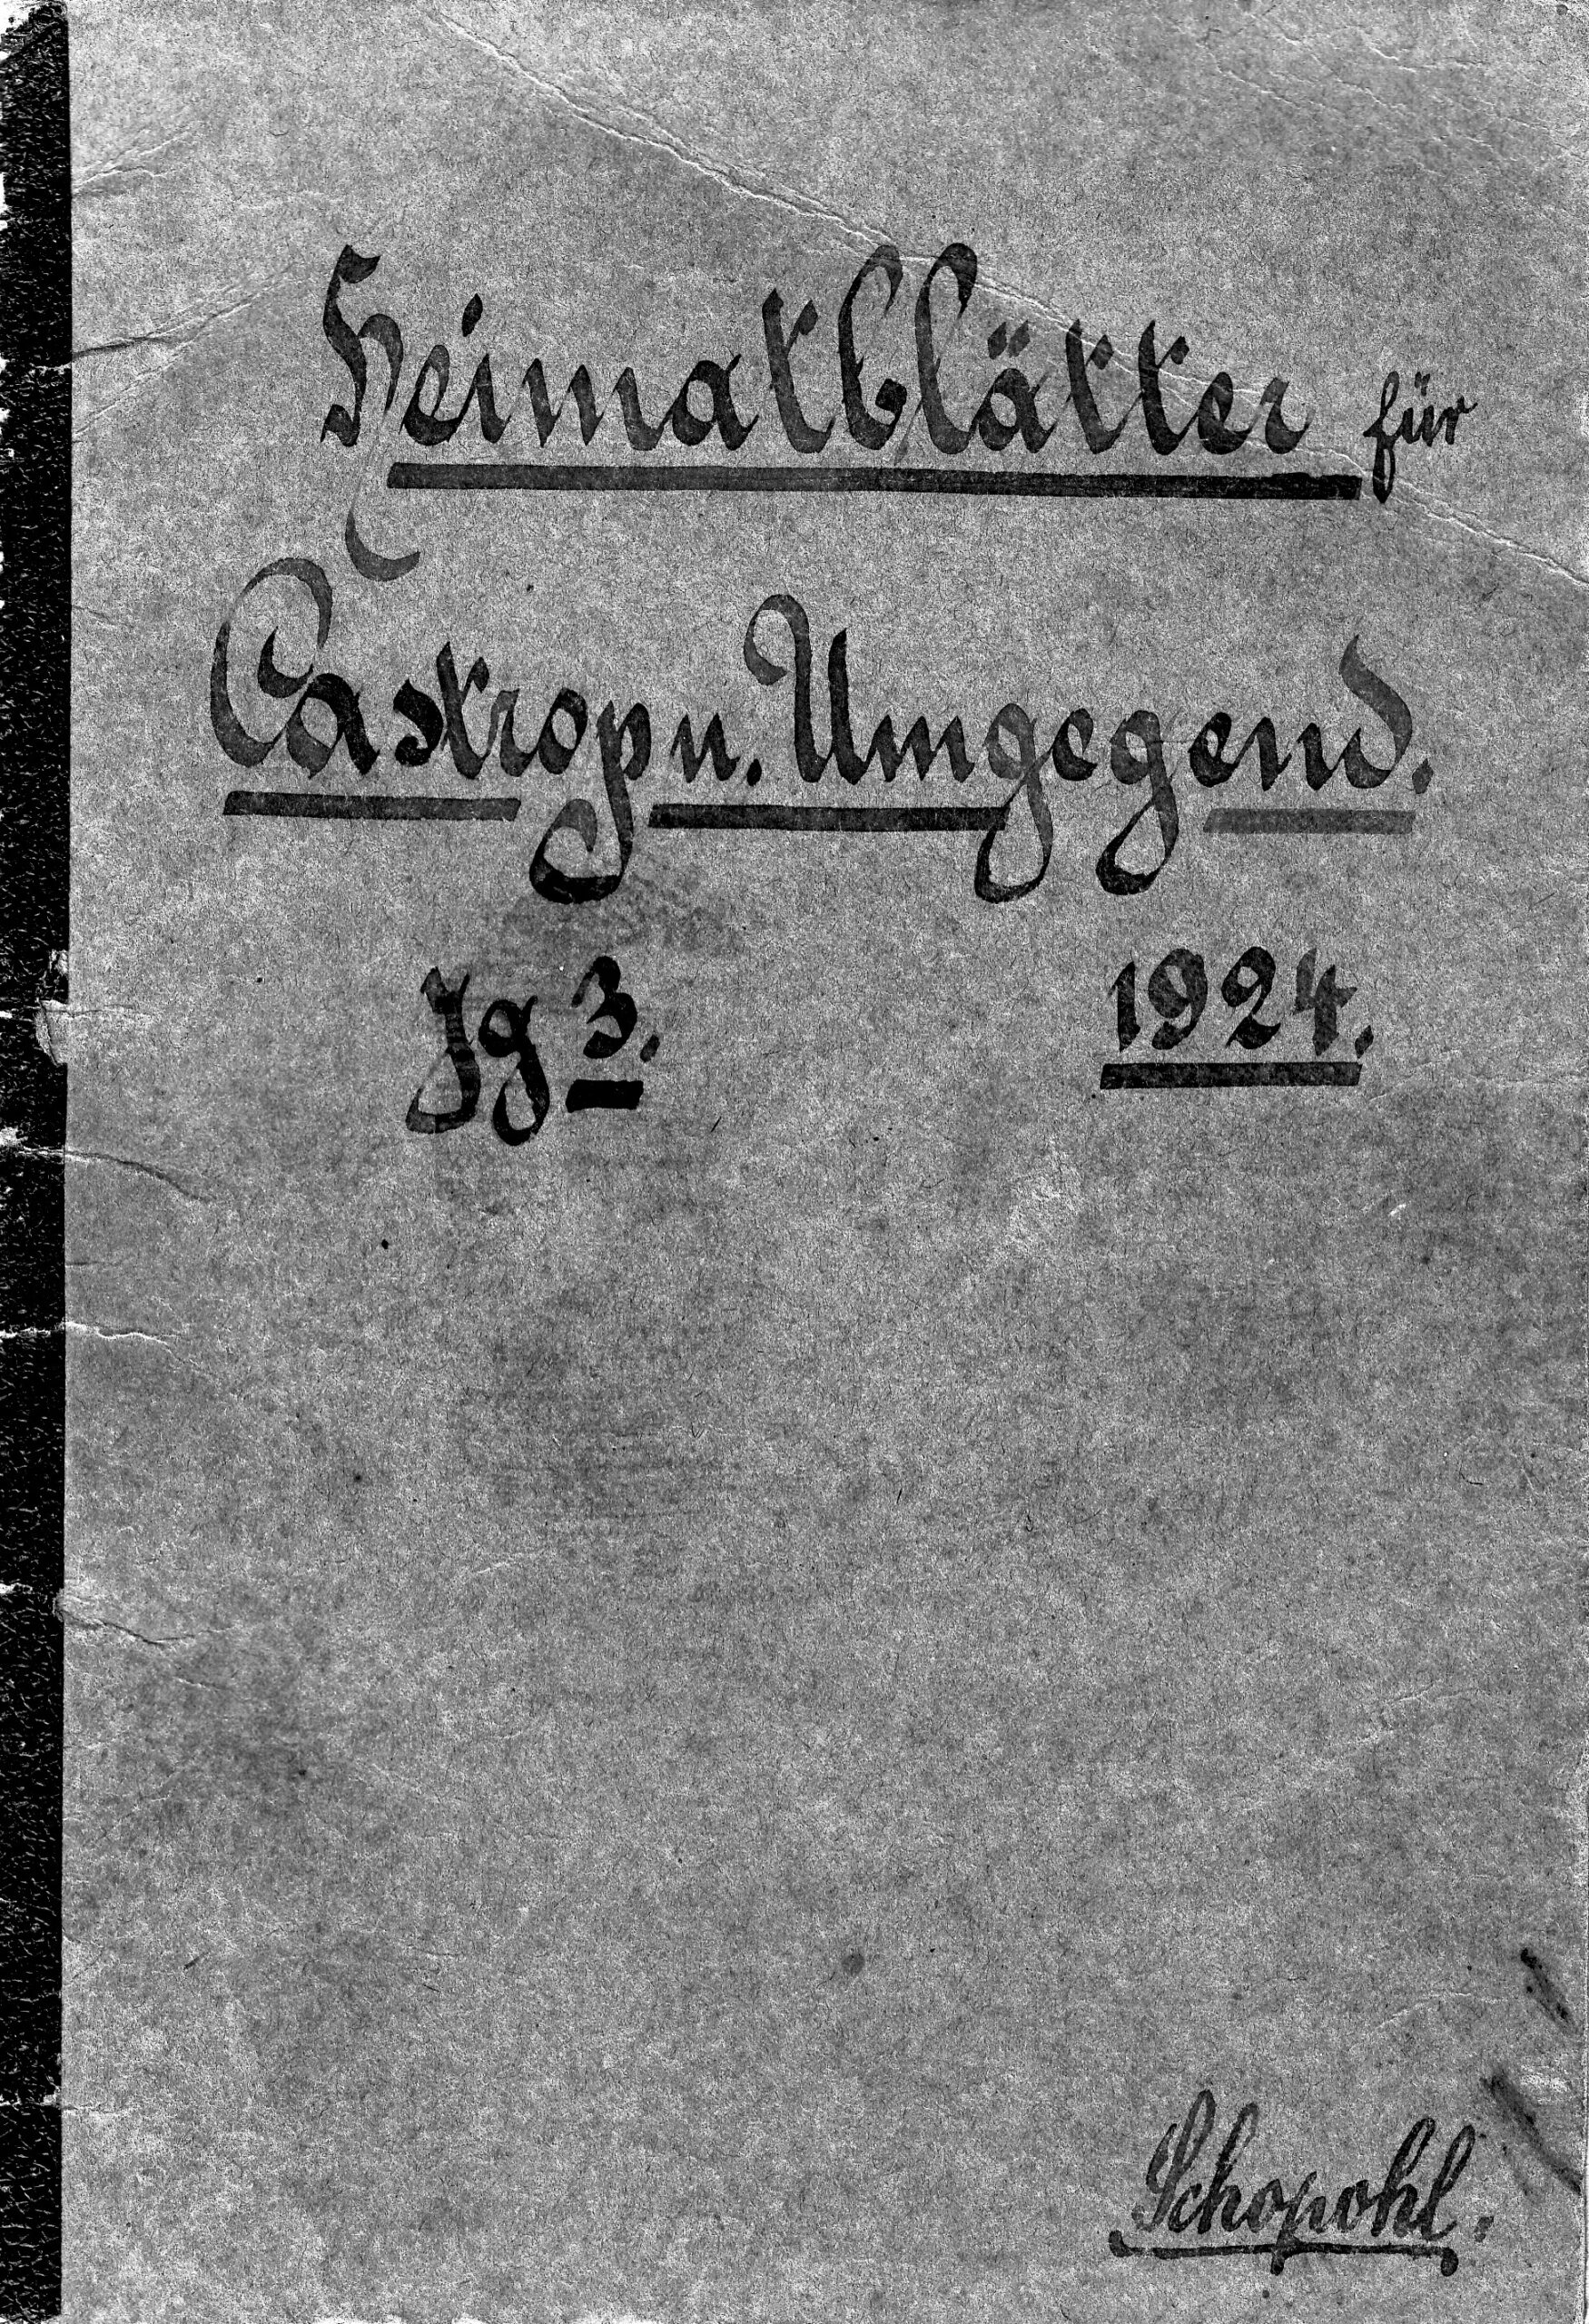 Heimatblätter für
Castrop u. Umgegend.
Jg 3. 1924.
Schopohl.